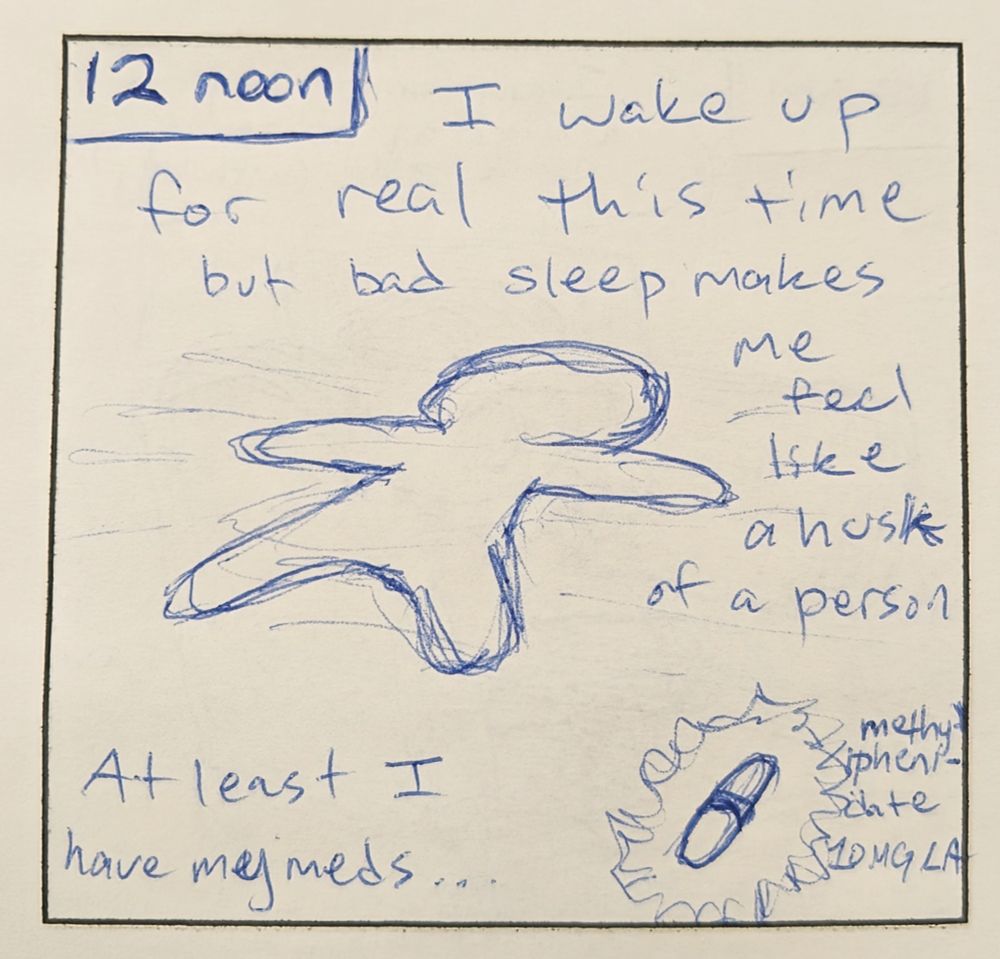 12 noon
I wake up
for real this time
but bad sleep makes
me
feel
like
a husk
of a person
At least I
have my meds...
methyl
pheni-
date
10MG LA